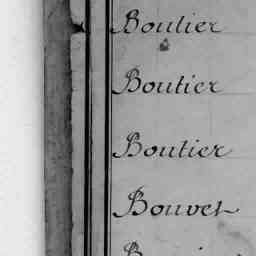 Boutier
Boutier
Boutier
Bouvet